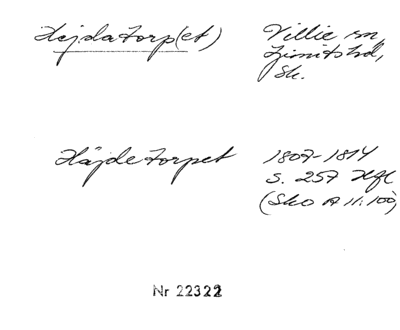 Hejdatorp(et) Villie sn,
Ljunits hd,
Sk.
Häjdetorpet 1807-1814
s. 257 Hfl
(SkO A II:100)
Nr 22322